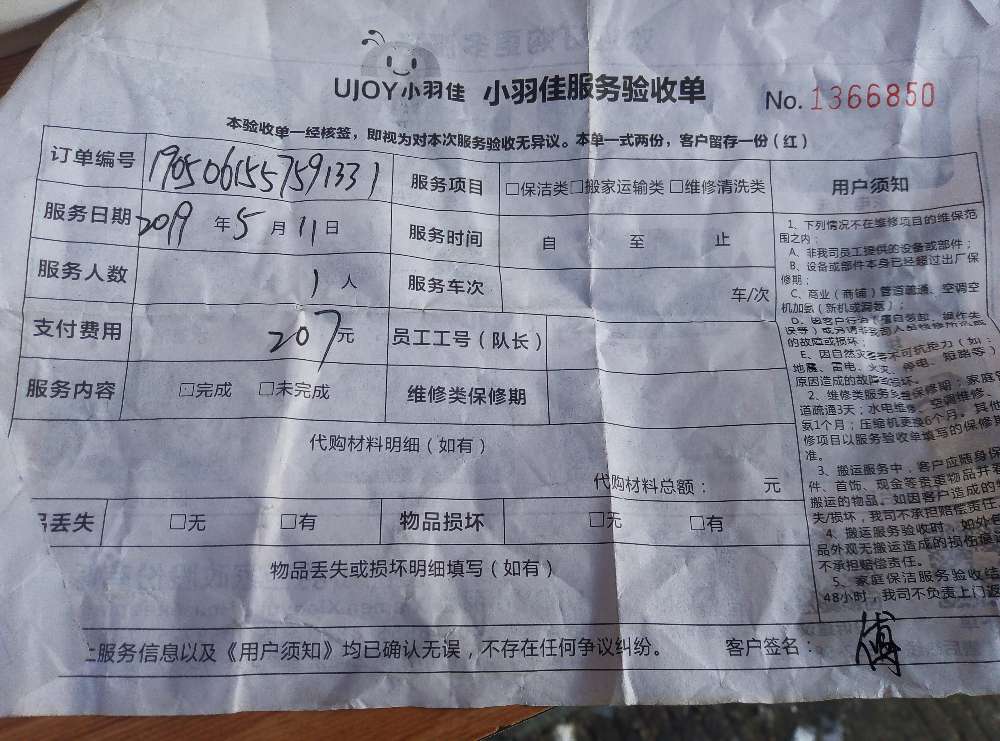 UJOY小羽佳 小羽佳服务验收单 No. 1366850
本验收单一经核签，即视为对本次服务验收无异议。本单一式两份，客户留存一份（红）
订单编号 1905061557591331 服务项目 □保洁类□搬家运输类□维修清洗类 用户须知
服务日期 2019 年 5 月 11 日 服务时间 自 至 止
服务人数 1 人 服务车次 车/次
支付费用 207 元 员工工号（队长）
服务内容 □完成 □未完成 维修类保修期
代购材料明细（如有）
代购材料总额： 元
丢失 □无 □有 物品损坏 □无 □有
物品丢失或损坏明细填写（如有）
上服务信息以及《用户须知》均已确认无误，不存在任何争议纠纷。 客户签名： 傅
1、下列情况不在维修项目的维保范
围之内：
A、非我司员工提供的设备或部件；
B、设备或部件本身已经超过出厂保
修期；
C、商业（商铺）管道疏通、空调空
机加氨（新机或漏氨）；
的故障或损坏；
E、因自然灾 不可抗力（如：
地震、雷电、火灾、停电、短路等）
原因造成的故障或损坏。
2、维修类服务 保修期：家庭
道疏通3天；水电维修、空调维修、
氨1个月；压缩机更换6个月。其他
修项目以服务验收单填写的保修期
准。
3、搬运服务中，客户应随身保
件、首饰、现金等贵重物品并
搬运的物品。如因客户造成的
失/损坏，我司不承担赔偿责任
4、搬运服务验收时，如外包
品外观无搬运造成的损伤
不承担赔偿责任。
5、家庭保洁服务验收结
48小时，我司不负责上门返